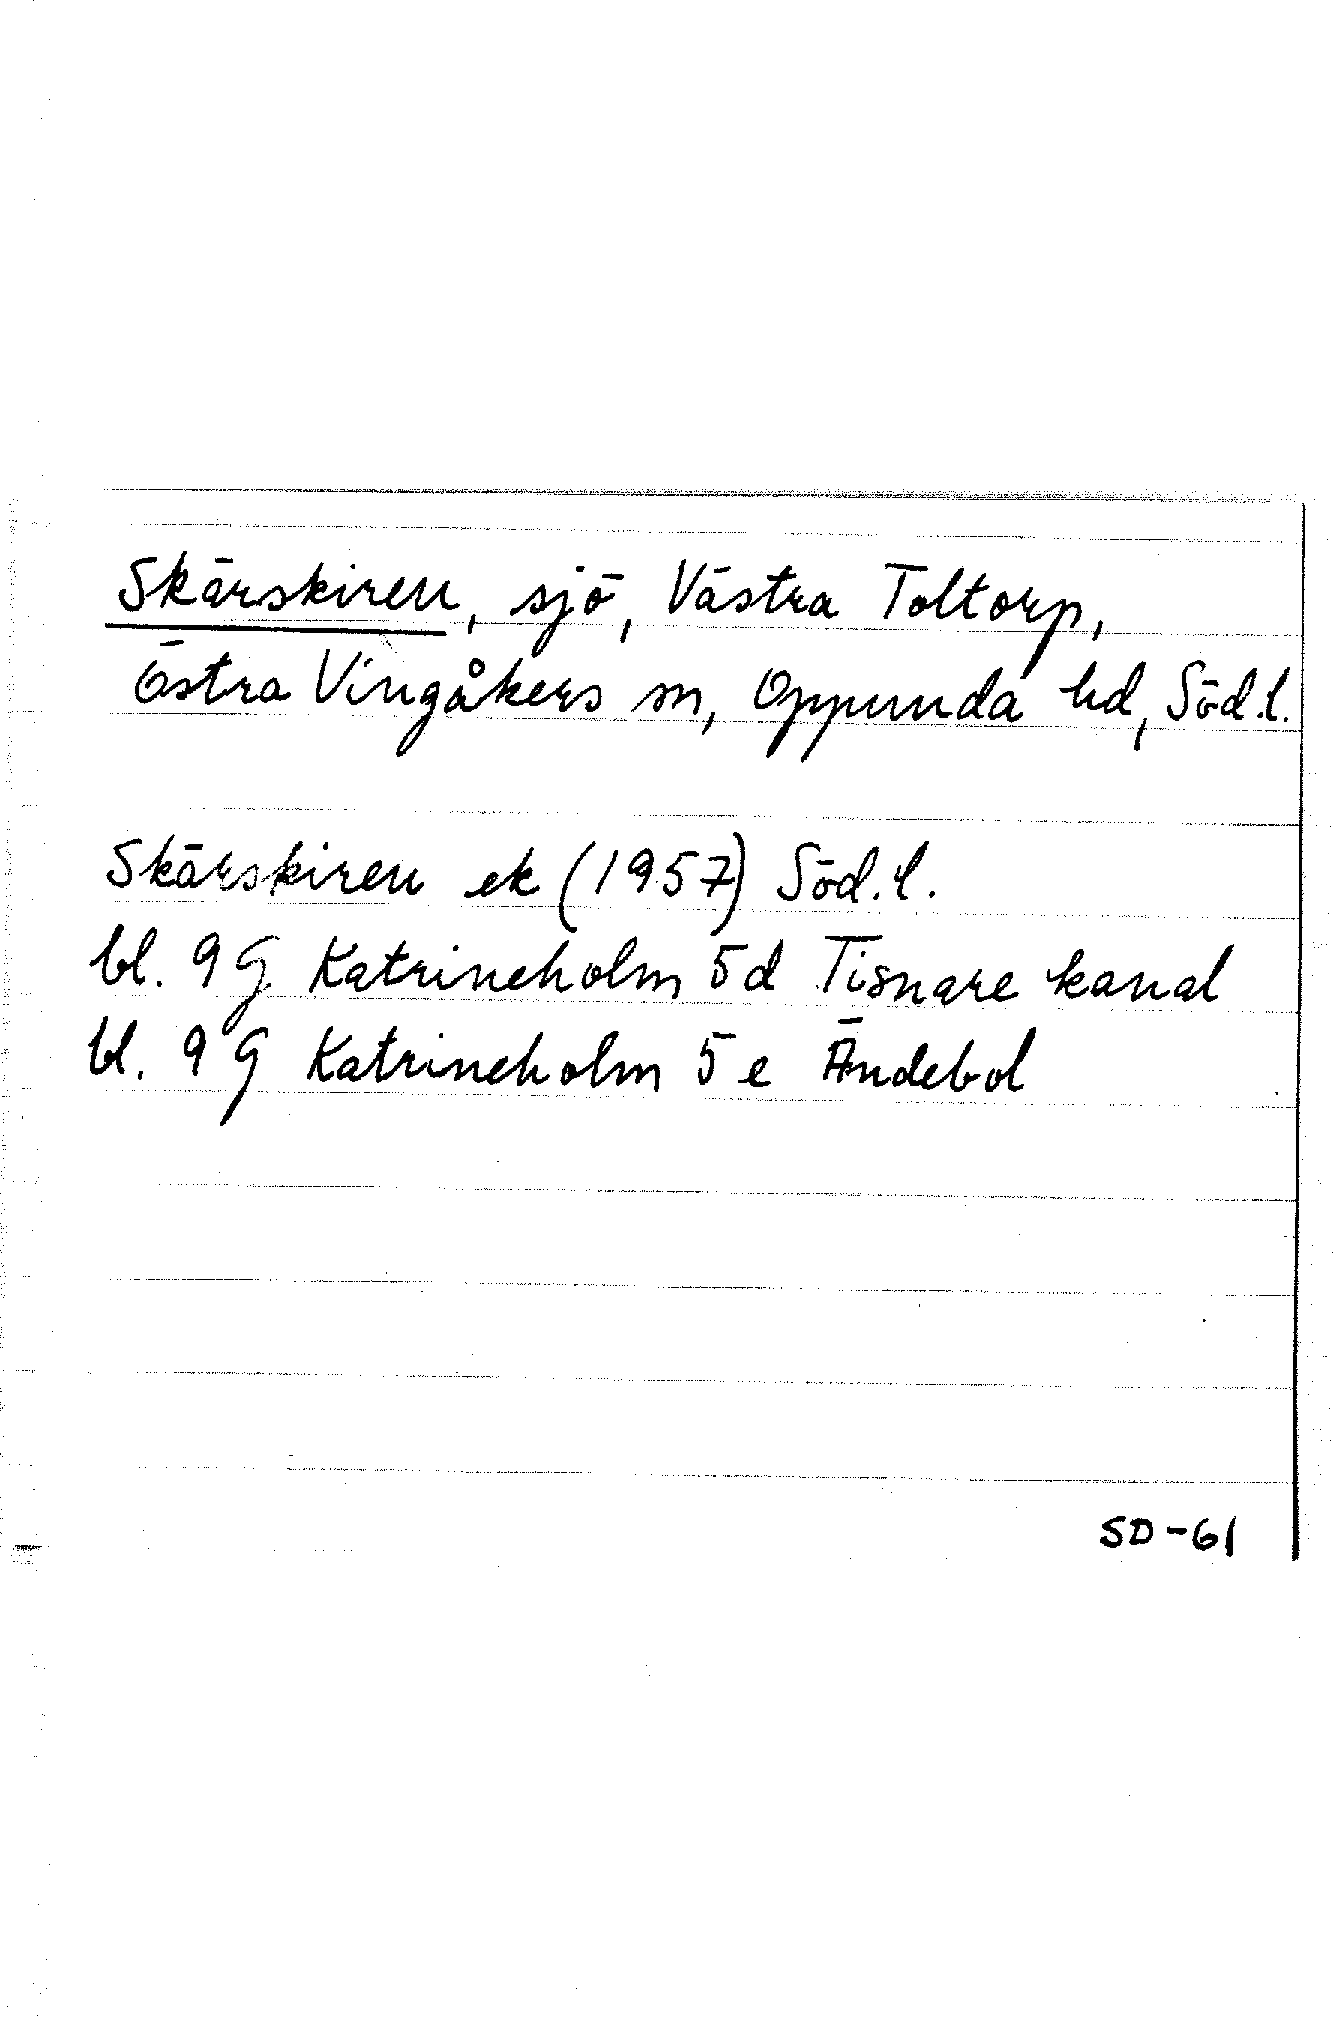 Skärskiren, sjö, Västra Toltorp,
Östra Vingåkers sn, Oppunda hd, Söd.l.
Skärskiren ek (1957) Söd.l.
bl. 9G Katrineholm 5d Tisnare kanal
bl. 9G Katrineholm 5e Ändebol
SD-61